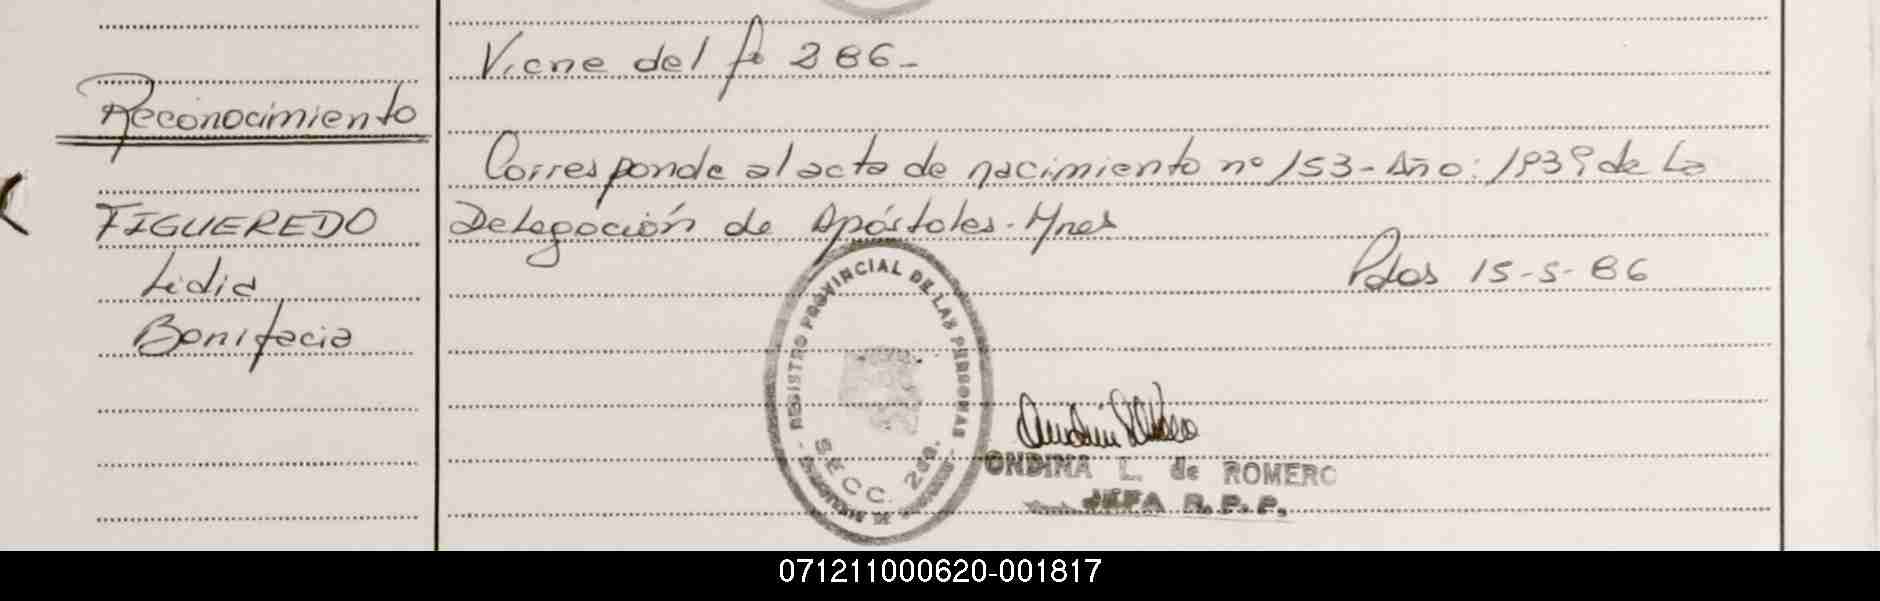 Viene del fº 286-
Reconocimiento
Corresponde al acta de nacimiento nº 153-Año: 1939 de La
FIGUEREDO
Delegación de Apóstoles-Mnes
Lidia
Pdas 15-5-86
Bonifacia
REGISTRO PROVINCIAL DE LAS PERSONAS
SECC. 2da.
ONDINA L. de ROMERO
JEFA R.P.P.